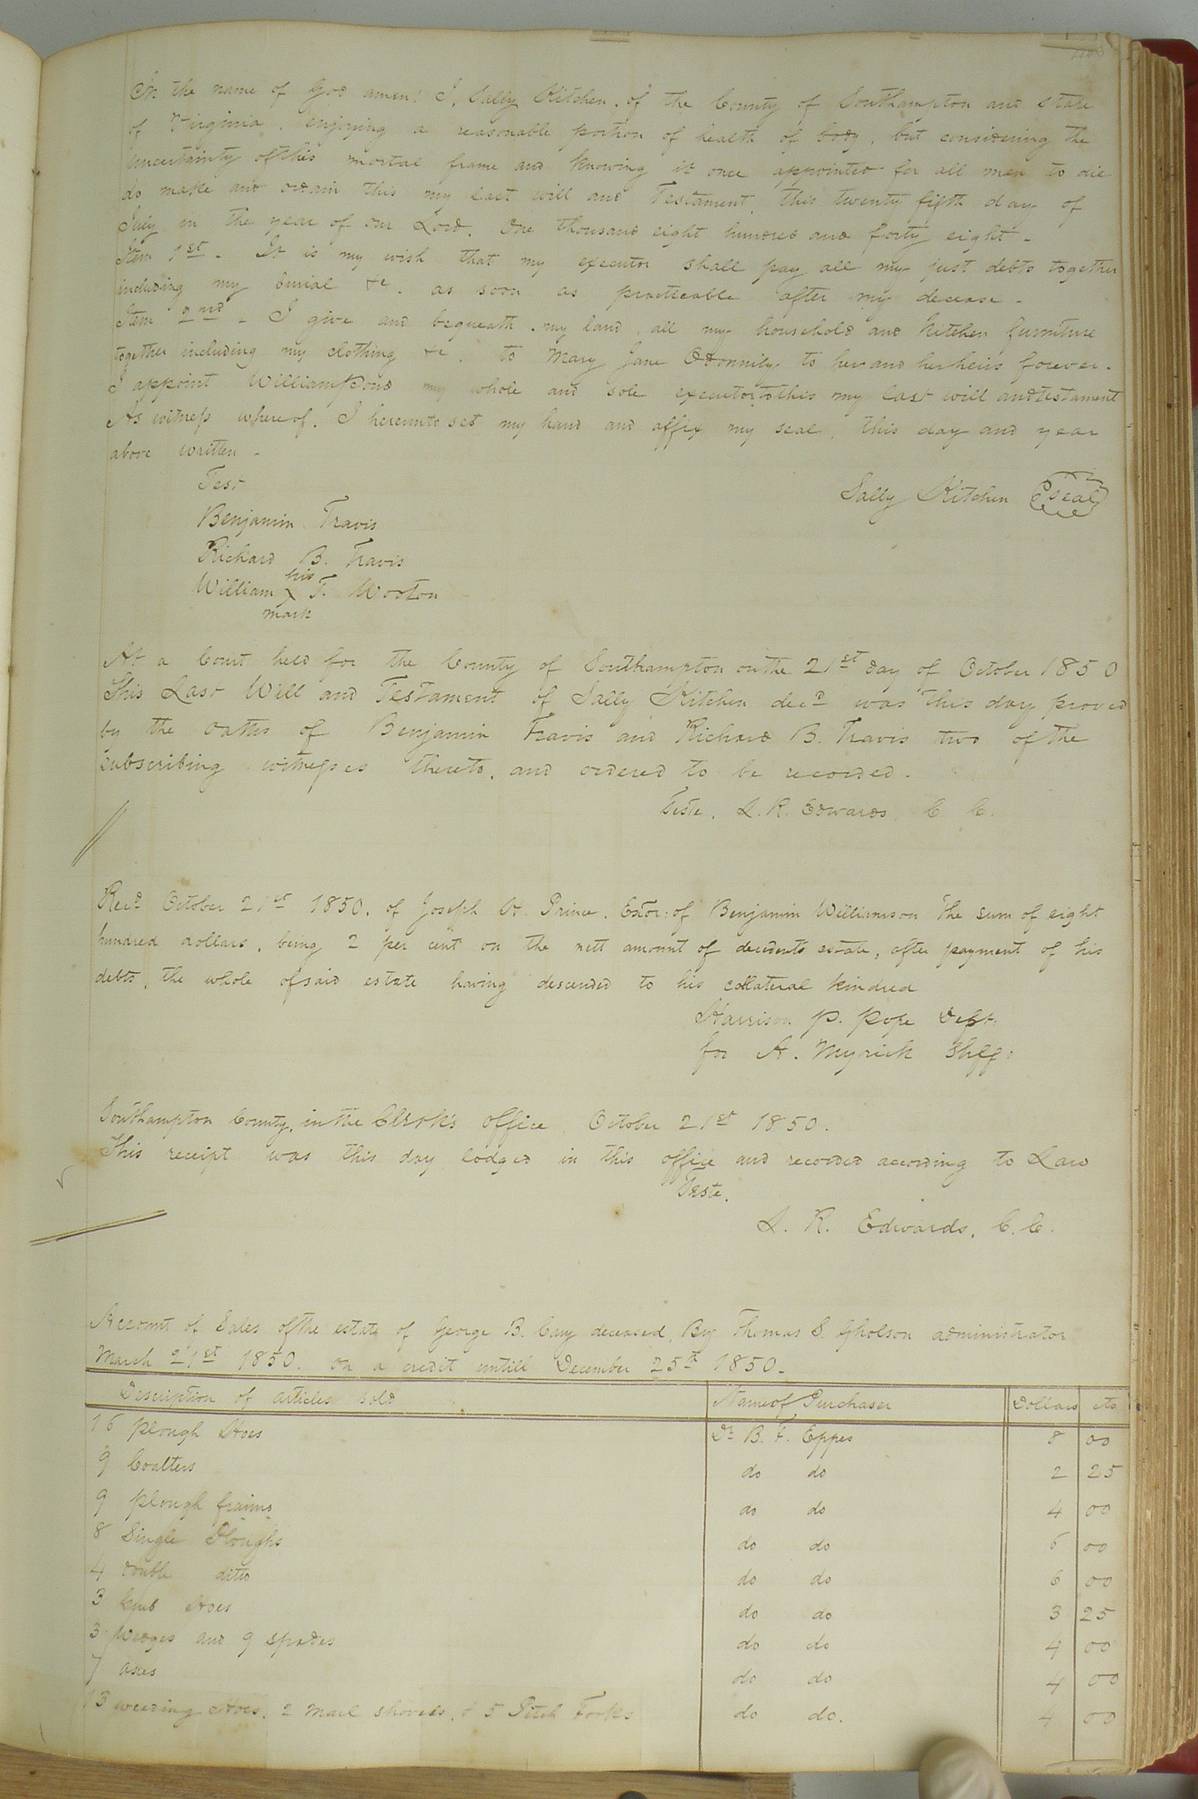 In the name of God amen! I, Sally Kitchen, of the County of Southampton and state
of Virginia, enjoying a reasonable portion of health of body, but considering the
uncertainty of this mortal frame and knowing it once appointed for all men to die
do make and ordain this my last will and Testament, this twenty fifth day of
July in the year of our Lord, One thousand eight hundred and forty eight -
Item 1st - It is my wish that my executor shall pay all my just debts together
including my burial &c. as soon as practicable after my decease -
Item 2nd - I give and bequeath my land, all my household and kitchen furniture
together including my clothing &c. to Mary Jane to her and her heirs forever.
I appoint William Pond my whole and sole executor to this my last will and testament
As witness whereof, I hereunto set my hand and affix my seal, this day and year
above written -
Test
Sally Kitchen seal
Benjamin Travis
Richard B. Travis
his
William X T. Wooton
mark
At a Court held for the County of Southampton on the 21st day of October 1850
This Last Will and Testament of Sally Kitchen decd was this day proved
by the oaths of Benjamin Travis and Richard B. Travis two of the
subscribing witnesses thereto, and ordered to be recorded.
Teste, L. R. Edwards C. C.
Recd October 21st 1850, of Joseph H. Prince, Exor: of Benjamin Williamson the sum of eight
hundred dollars, being 2 per cent on the nett amount of decedents estate, after payment of his
debts, the whole of said estate having descended to his collateral kindred
Harrison P. Pope Dept.
for A. Myrick Shff:
Southampton County, in the Clerk's office October 21st 1850.
This receipt was this day lodged in this office and recorded according to Law
Teste.
L. R. Edwards, C. C.
Account of Sales of the estate of George B. Cary deceased, By Thomas S. Gholson administrator
March 21st 1850. on a credit untill December 25th 1850-
Description of articles sold Name of Purchaser Dollars cts
16 plough Hoes Dr B. F. Eppes 8 00
9 Coalters do do 2 25
9 plough fraims do do 4 00
8 Single Ploughs do do 6 00
4 double ditto do do 6 00
3 Grub Hoes do do 3 25
3 wedges and 9 spades do do 4 00
7 axes do do 4 00
13 weeding Hoes, 2 Marl shovels, & 5 Pitch Forks do do. 4 00